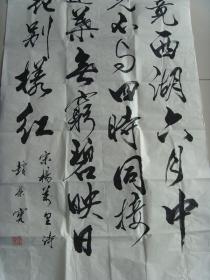 竟西湖六月中
光不与四時同接
葉無窮碧映日
花别樣红
宋楊萬里詩